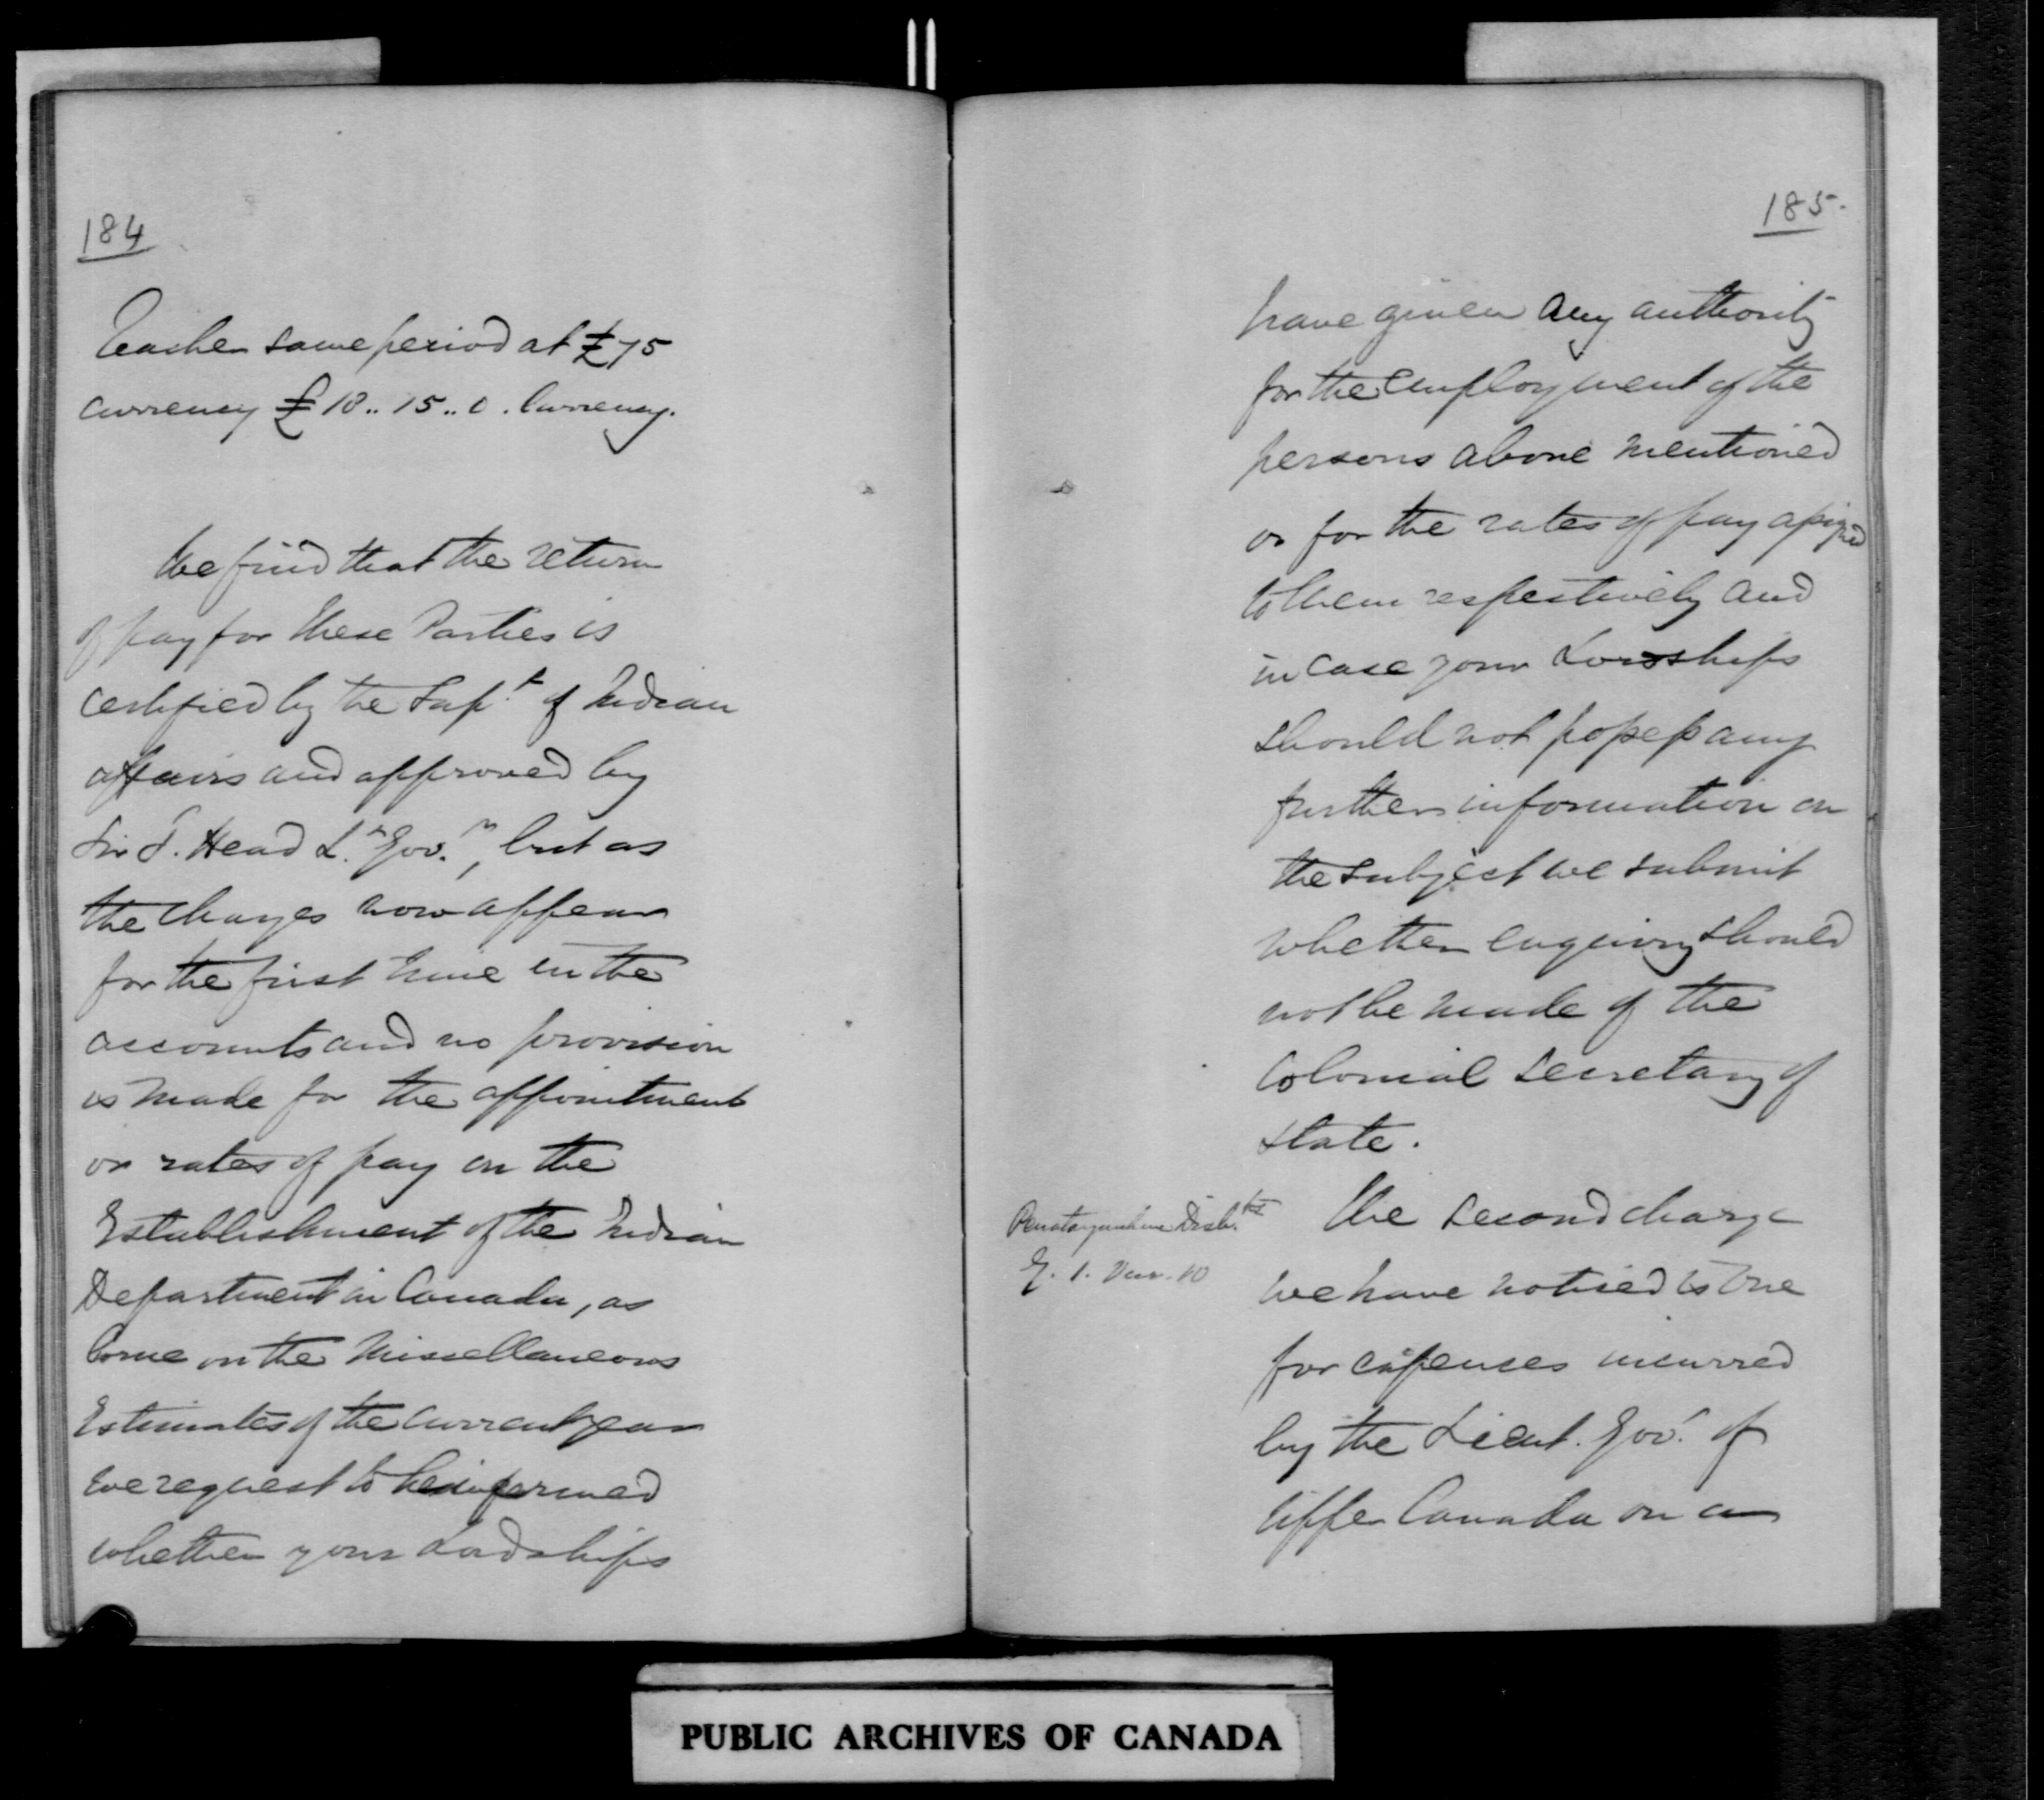 184
Teacher same period at £75
currency £18..15..0. Currency.
We find that the return
of pay for these Parties is
certified by the Supt. of Indian
affairs and approved by
Sir F. Head Lt. Govr., but as
the charges now appear
for the first time in the
accounts and no provision
is made for the appointment
or rates of pay on the
Establishment of the Indian
Department in Canada, as
borne on the Miscellaneous
Estimates of the current year
we request to be informed
whether your Lordships
185.
have given any authority
for the employment of the
persons above mentioned
or for the rates of pay assigned
to them respectively and
in case your Lordships
should not possess any
further information on
the subject we submit
whether enquiry should
not be made of the
Colonial Secretary of
State.
Penetanguishene Disb.ts
The second charge
we have noticed is one
for expenses incurred
by the Lieut. Govr. of
Upper Canada on a
PUBLIC ARCHIVES OF CANADA